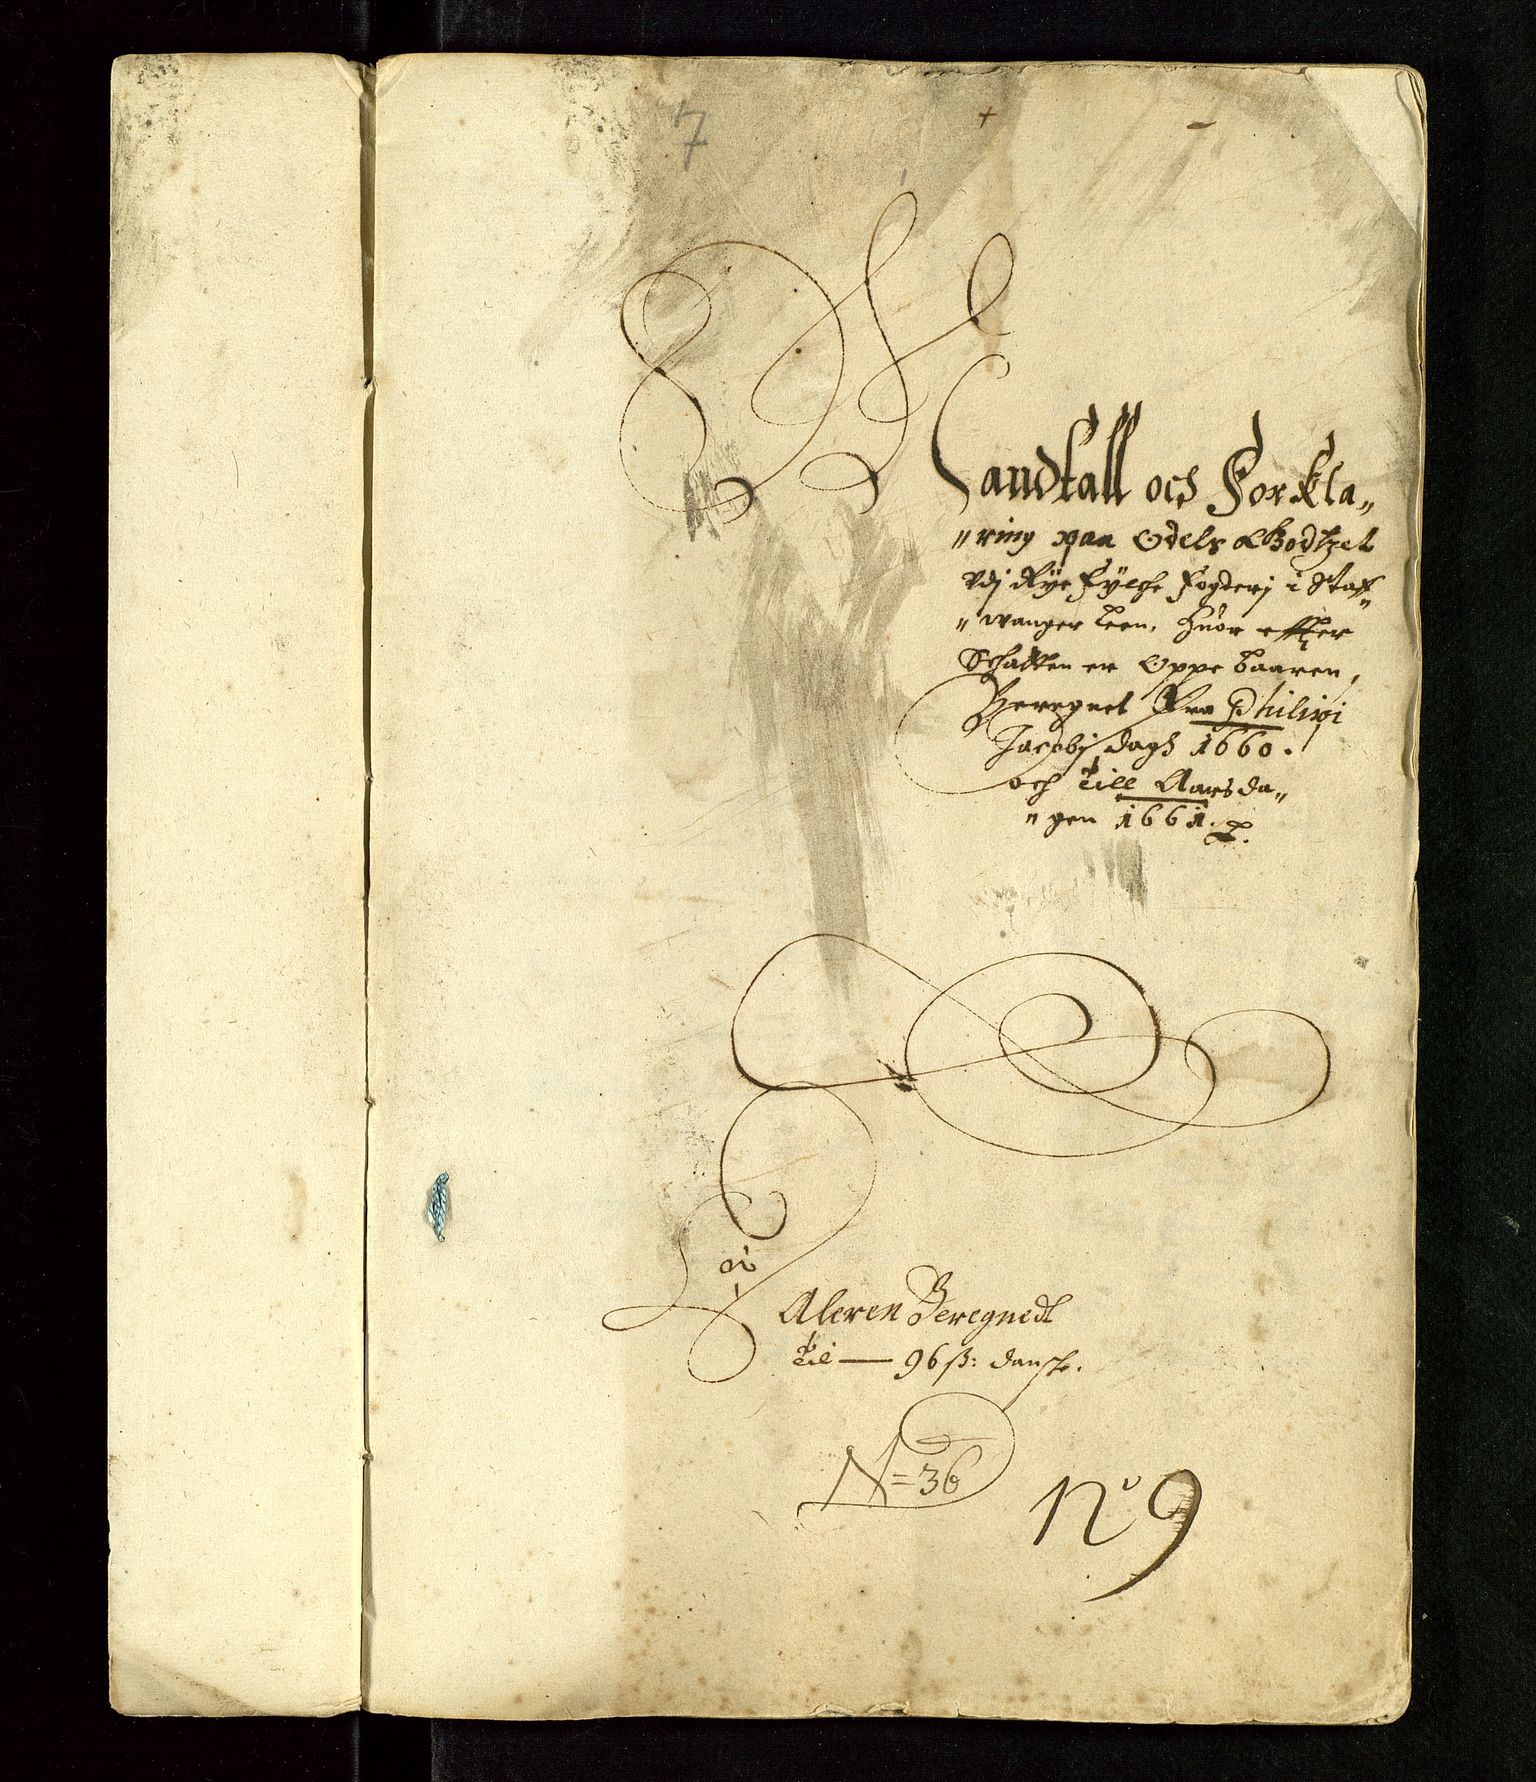 7
Mandtall och Forkla„
„ring paa Odels Godtzet
Vdj Rye Fylche Fogderj i Staff„
„wanger Leen, huor effter
Schatten er Oppe baaren,
Beregnet Fra Philipi
Jacobj dagh 1660.
och till Aarsda„
„gen 1661.
Aleren Beregnedt
til — 96 ß: danske.
N=36
No 9